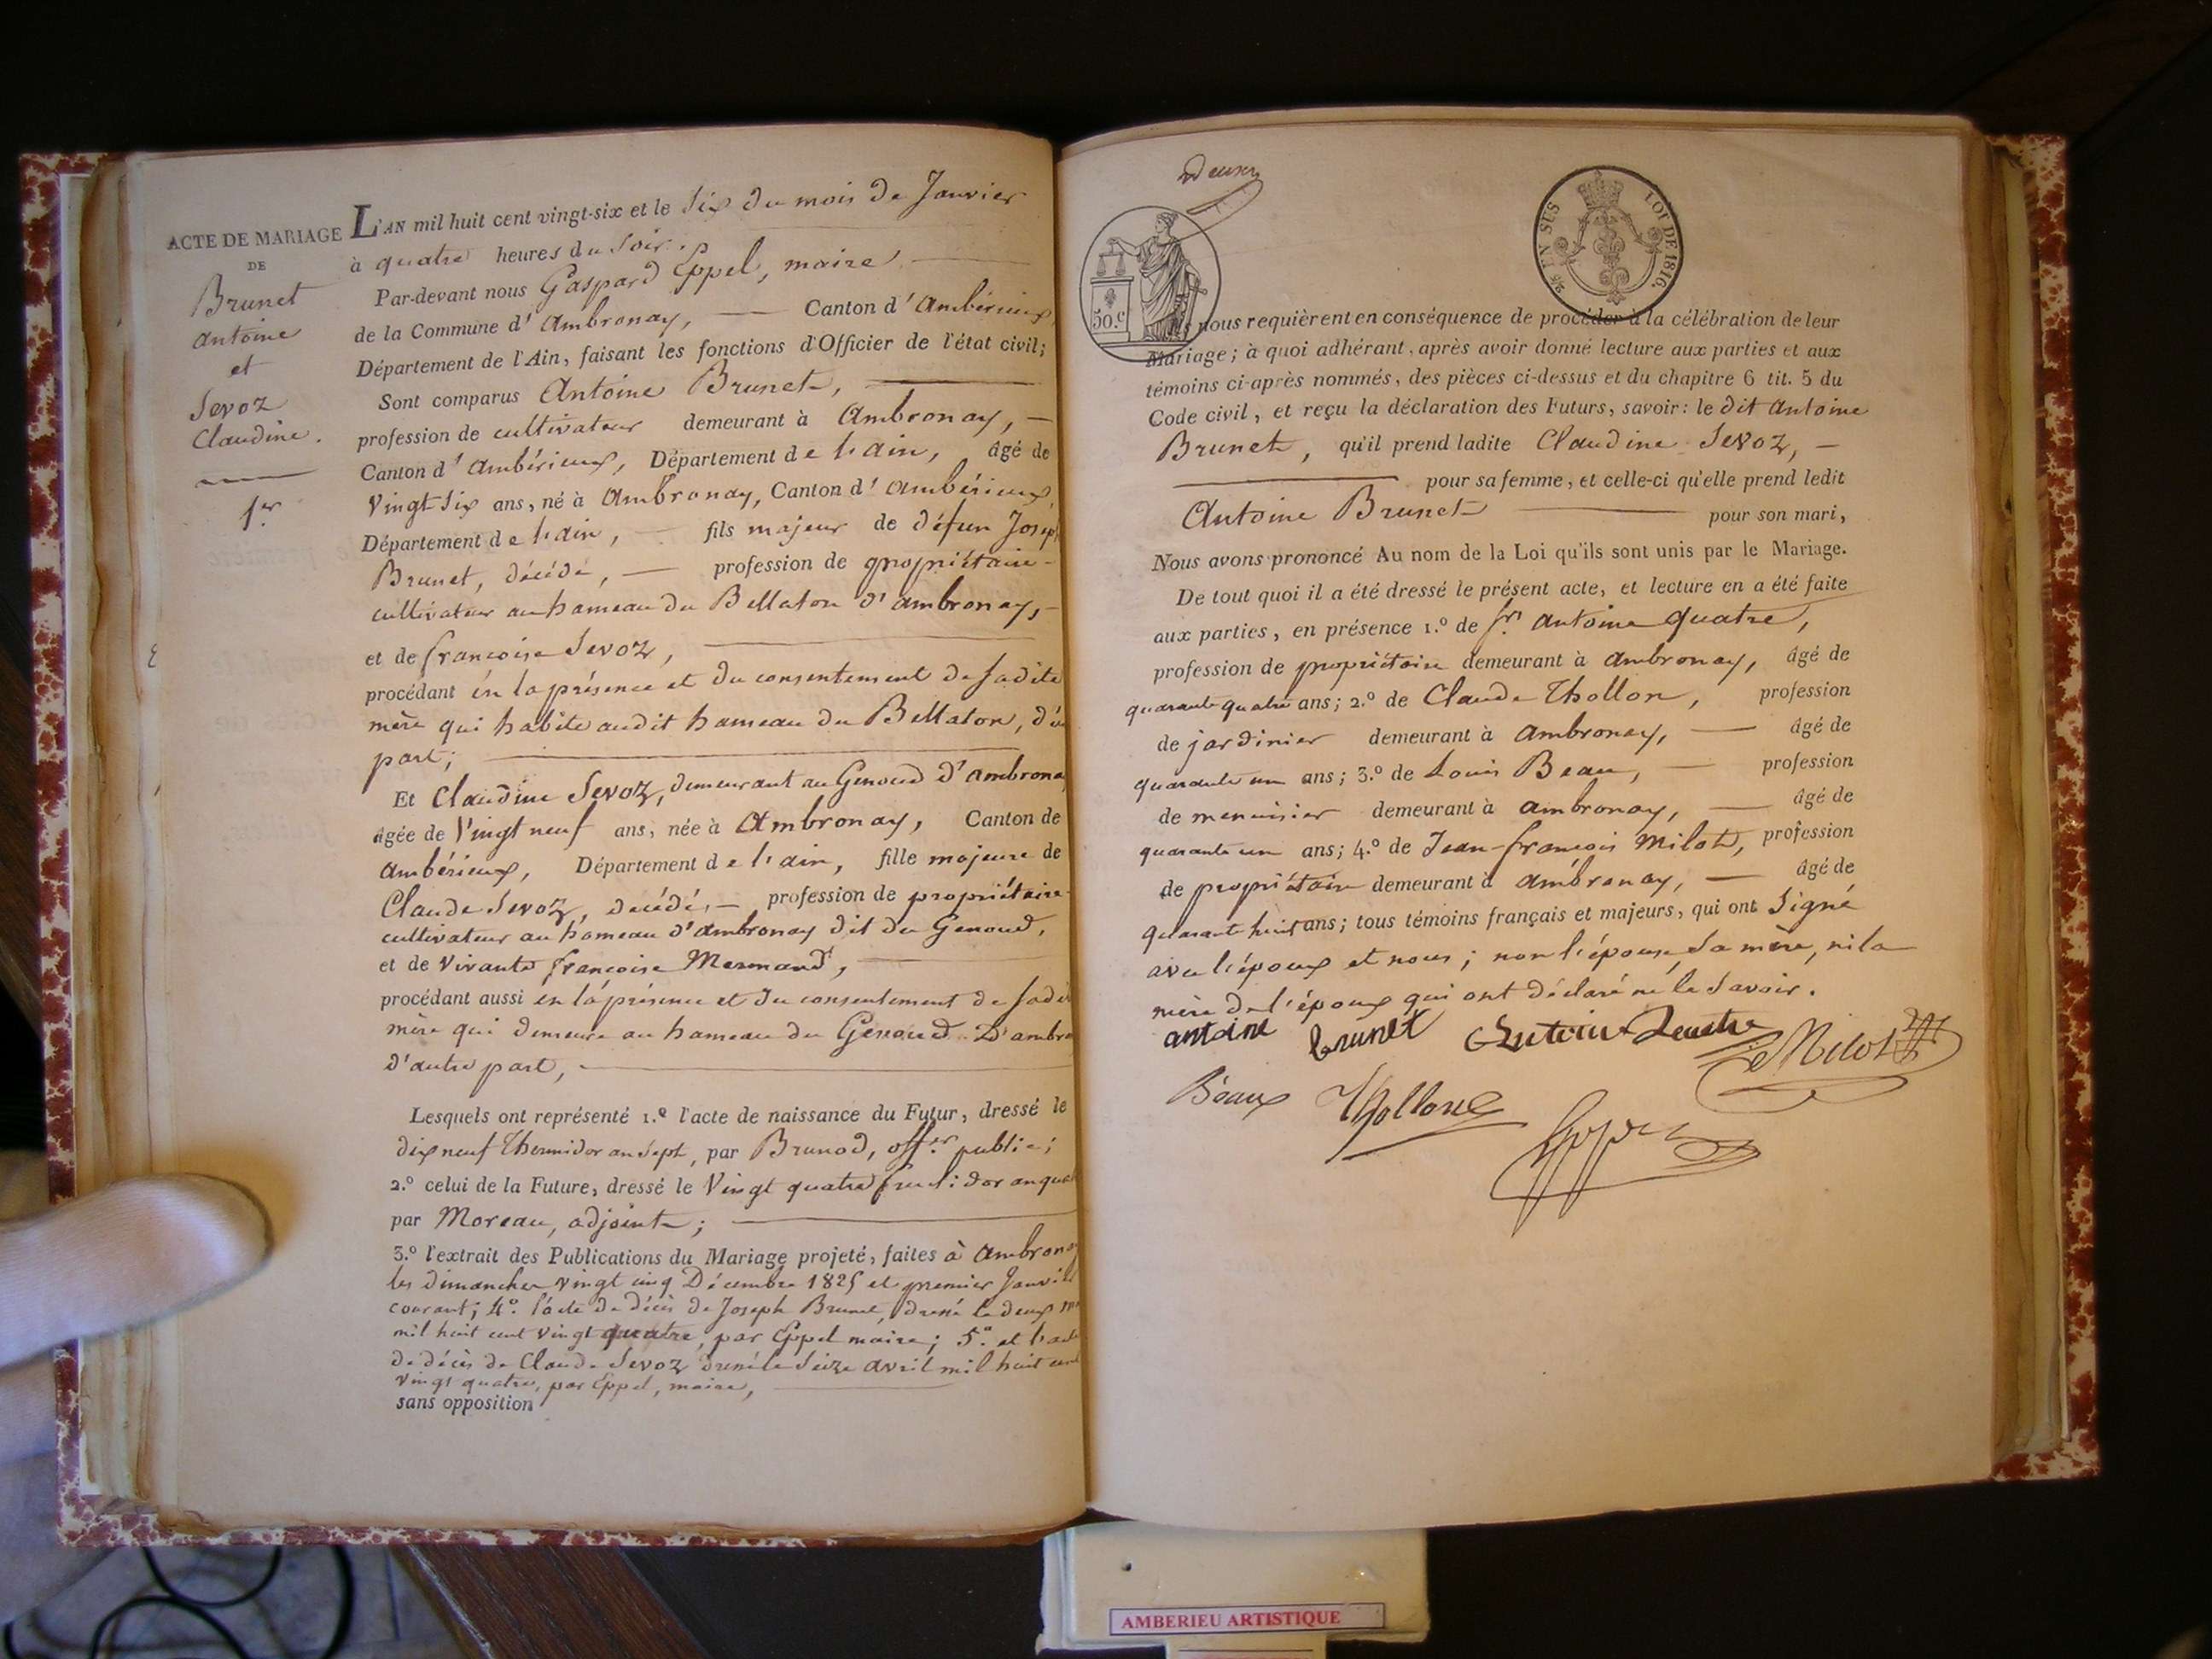 ACTE DE MARIAGE
DE
Brunet
antoine
et
Sevoz
Claudine.
1er
L'AN mil huit cent vingt-six et le Six du mois de Janvier
à quatre heures du Soir.
Par-devant nous Gaspard Eppel, maire
de la Commune d'Ambronay, Canton d'Ambérieux
Département de l'Ain, faisant les fonctions d'Officier de l'état civil;
Sont comparus Antoine Brunet,
profession de cultivateur demeurant à Ambronay,
Canton d'Ambérieux, Département de l'ain, âgé de
Vingt Six ans, né à Ambronay, Canton d'Ambérieux
Département de l'ain, fils majeur de défun Josep
Brunet, décédé, profession de propriétaire
cultivateur au hameau du Bellaton d'ambronay,
et de francoise Sevoz,
procédant en la présence et du consentement de Sadite
mère qui habite audit hameau du Bellaton, d'u
part;
Et Claudine Sevoz, demeurant au Genoud d'ambrona
âgée de Vingt neuf ans, née à Ambronay, Canton de
Ambérieux, Département de l'ain, fille majeure de
Claude Sevoz, décédé, profession de propriétaire
cultivateur au hameau d'ambronay dit du Genoud,
et de Vivante francoise Mermand,
procédant aussi en la présence et du consentement de Sadi
mère qui demeure au hameau du Genoud D'ambro
d'autre part,
Lesquels ont représenté 1.º l'acte de naissance du Futur, dressé le
dix neuf Thermidor an Sept, par Brunod, offer public;
2.º celui de la Future, dressé le Vingt quatre fructidor an quat
par Moreau, adjoint;
3.º l'extrait des Publications du Mariage projeté, faites à Ambronay
les dimanches vingt cinq Décembre 1825 et premier Janvier
courant; 4º. l'acte de décès de Joseph Brunet, dressé le deux
mil huit cent vingt quatre, par Eppel maire; 5º. et l'acte
de décès de Claude Sevoz dressé le Seize avril mil huit cent
Vingt quatre, par Eppel, maire,
sans opposition
deux
50.c
25 EN SUS
LOI DE 1816.
nous requièrent en conséquence de procéder à la célébration de leur
Mariage; à quoi adhérant, après avoir donné lecture aux parties et aux
témoins ci-après nommés, des pièces ci-dessus et du chapitre 6 tit. 5 du
Code civil, et reçu la déclaration des Futurs, savoir: le dit Antoine
Brunet, qu'il prend ladite Claudine Sevoz,
pour sa femme, et celle-ci qu'elle prend ledit
Antoine Brunet pour son mari,
Nous avons prononcé Au nom de la Loi qu'ils sont unis par le Mariage.
De tout quoi il a été dressé le présent acte, et lecture en a été faite
aux parties, en présence 1.º de Sr. antoine quatre,
profession de propriétaire demeurant à ambronay, âgé de
quarante quatre ans; 2.º de Claude Thollon, profession
de jardinier demeurant à ambronay, âgé de
quarante un ans; 3.º de Louis Beau, profession
de menuisier demeurant à ambronay, âgé de
quarante un ans; 4.º de Jean-francois Milot, profession
de propriétaire demeurant à ambronay, âgé de
quarante huit ans; tous témoins français et majeurs, qui ont Signé
avec l'époux et nous; non l'épouse, Sa mère, ni la
mère de l'époux qui ont déclaré ne le Savoir.
antoine brunet Antoine Quatre Milot
Béaux Thollon
Eppel
AMBERIEU ARTISTIQUE